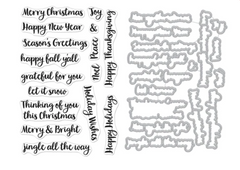 Merry Christmas
Happy New Year
Season's Greetings
happy fall y'all
grateful for you
let it snow
Thinking of you
this Christmas
Merry & Bright
jingle all the way
Joy
Peace &
Noel
Happy Thanksgiving
Holiday Wishes
Happy Holidays